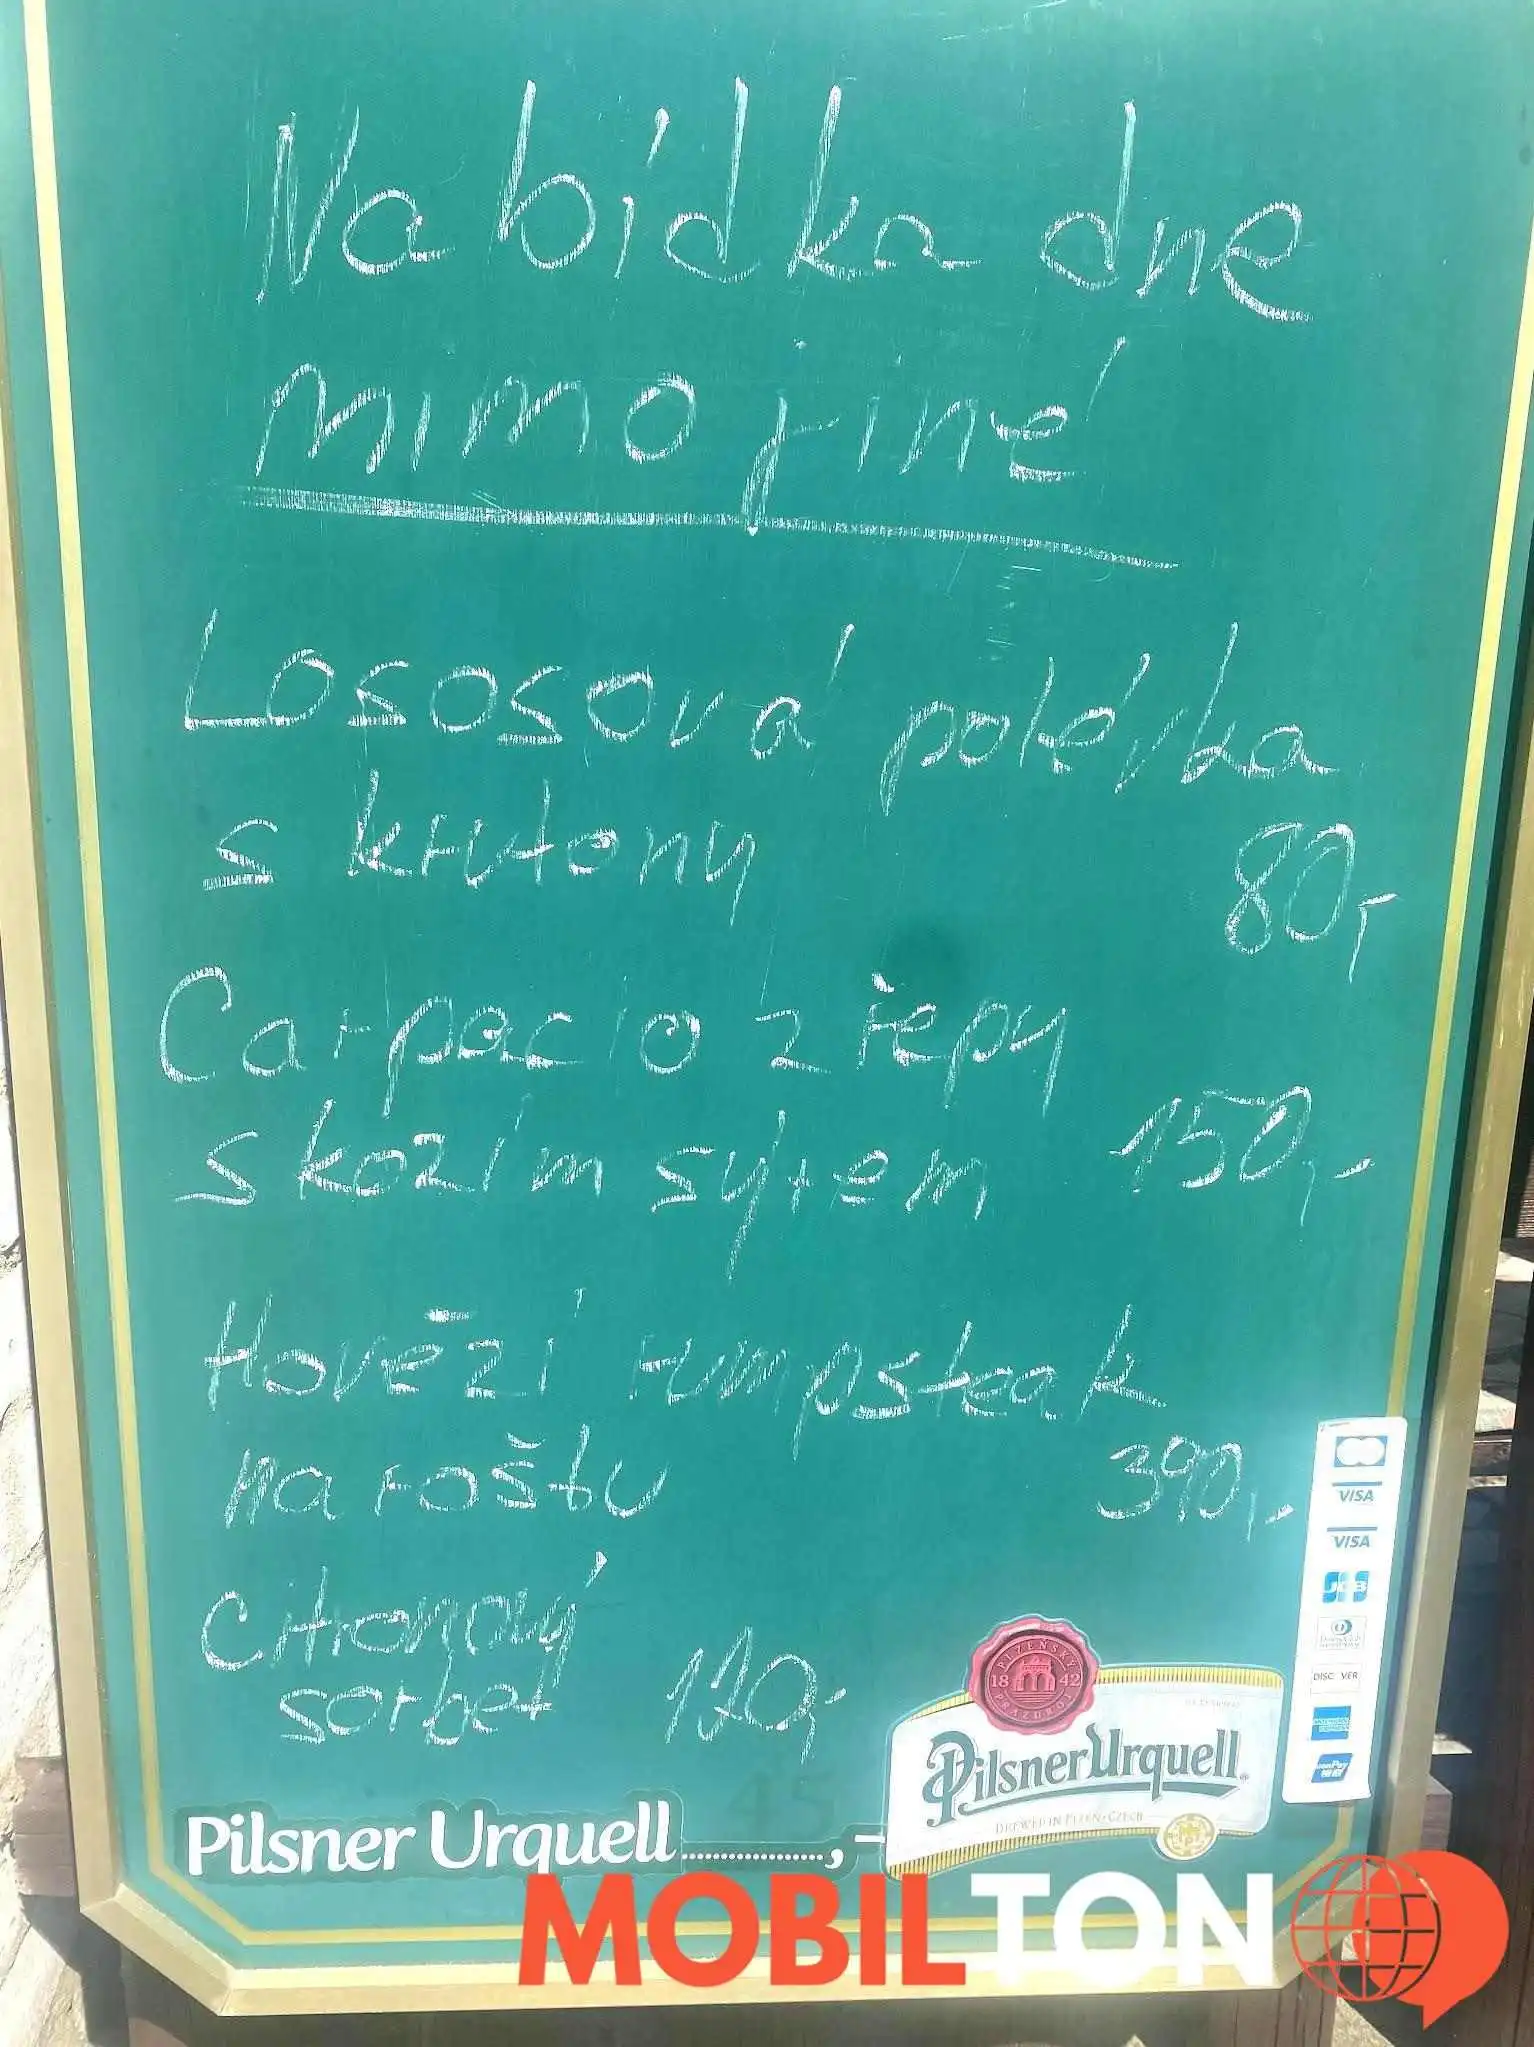 Nabídka dne
mimo jiné
Lososová polévka
s krutony 80,-
Carpacio z řepy
s kozím sýrem 150,-
Hověží rumpsteak
na roštu 390,-
Citronový
sorbet 120,-
PLZEŇSKÝ
18 42
PRAZDROJ
Pilsner Urquell
BREWED IN PLZEN·CZECH
VISA
VISA
JCB
DISC VER
AMERICAN EXPRESS
45
Pilsner Urquell..............,–
MOBILTON